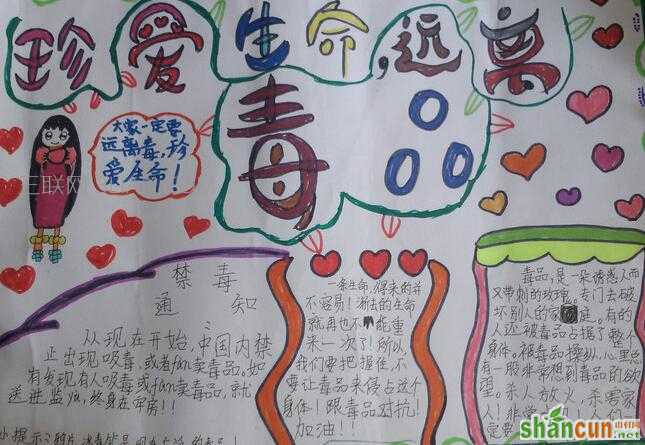 珍爱生命,远离
毒品
大家一定要
远离毒,珍
爱生命!
三联网
禁毒
通知
从现在开始,中国内禁
止出现吸毒,或者贩卖毒品,如
有发现有人吸毒或贩卖毒品,就
送进监狱,终身在牢房!!
小提示
一条生命,得来的并
不容易!消去的生命
就再也不能重
来一次了!所以,
我们要把握住,不
要让毒品来侵占这个
身体!跟毒品对抗!
加油!!
毒品,是一朵诱惑人而
又带刺的玫瑰,专门去破
坏别人的家庭。有的
人还被毒品占据了整个
身体。被毒品操纵,心里也
有一股非常想到毒品的欲
望。杀人放火,杀害家
人!非常
定要
shancun
山村网